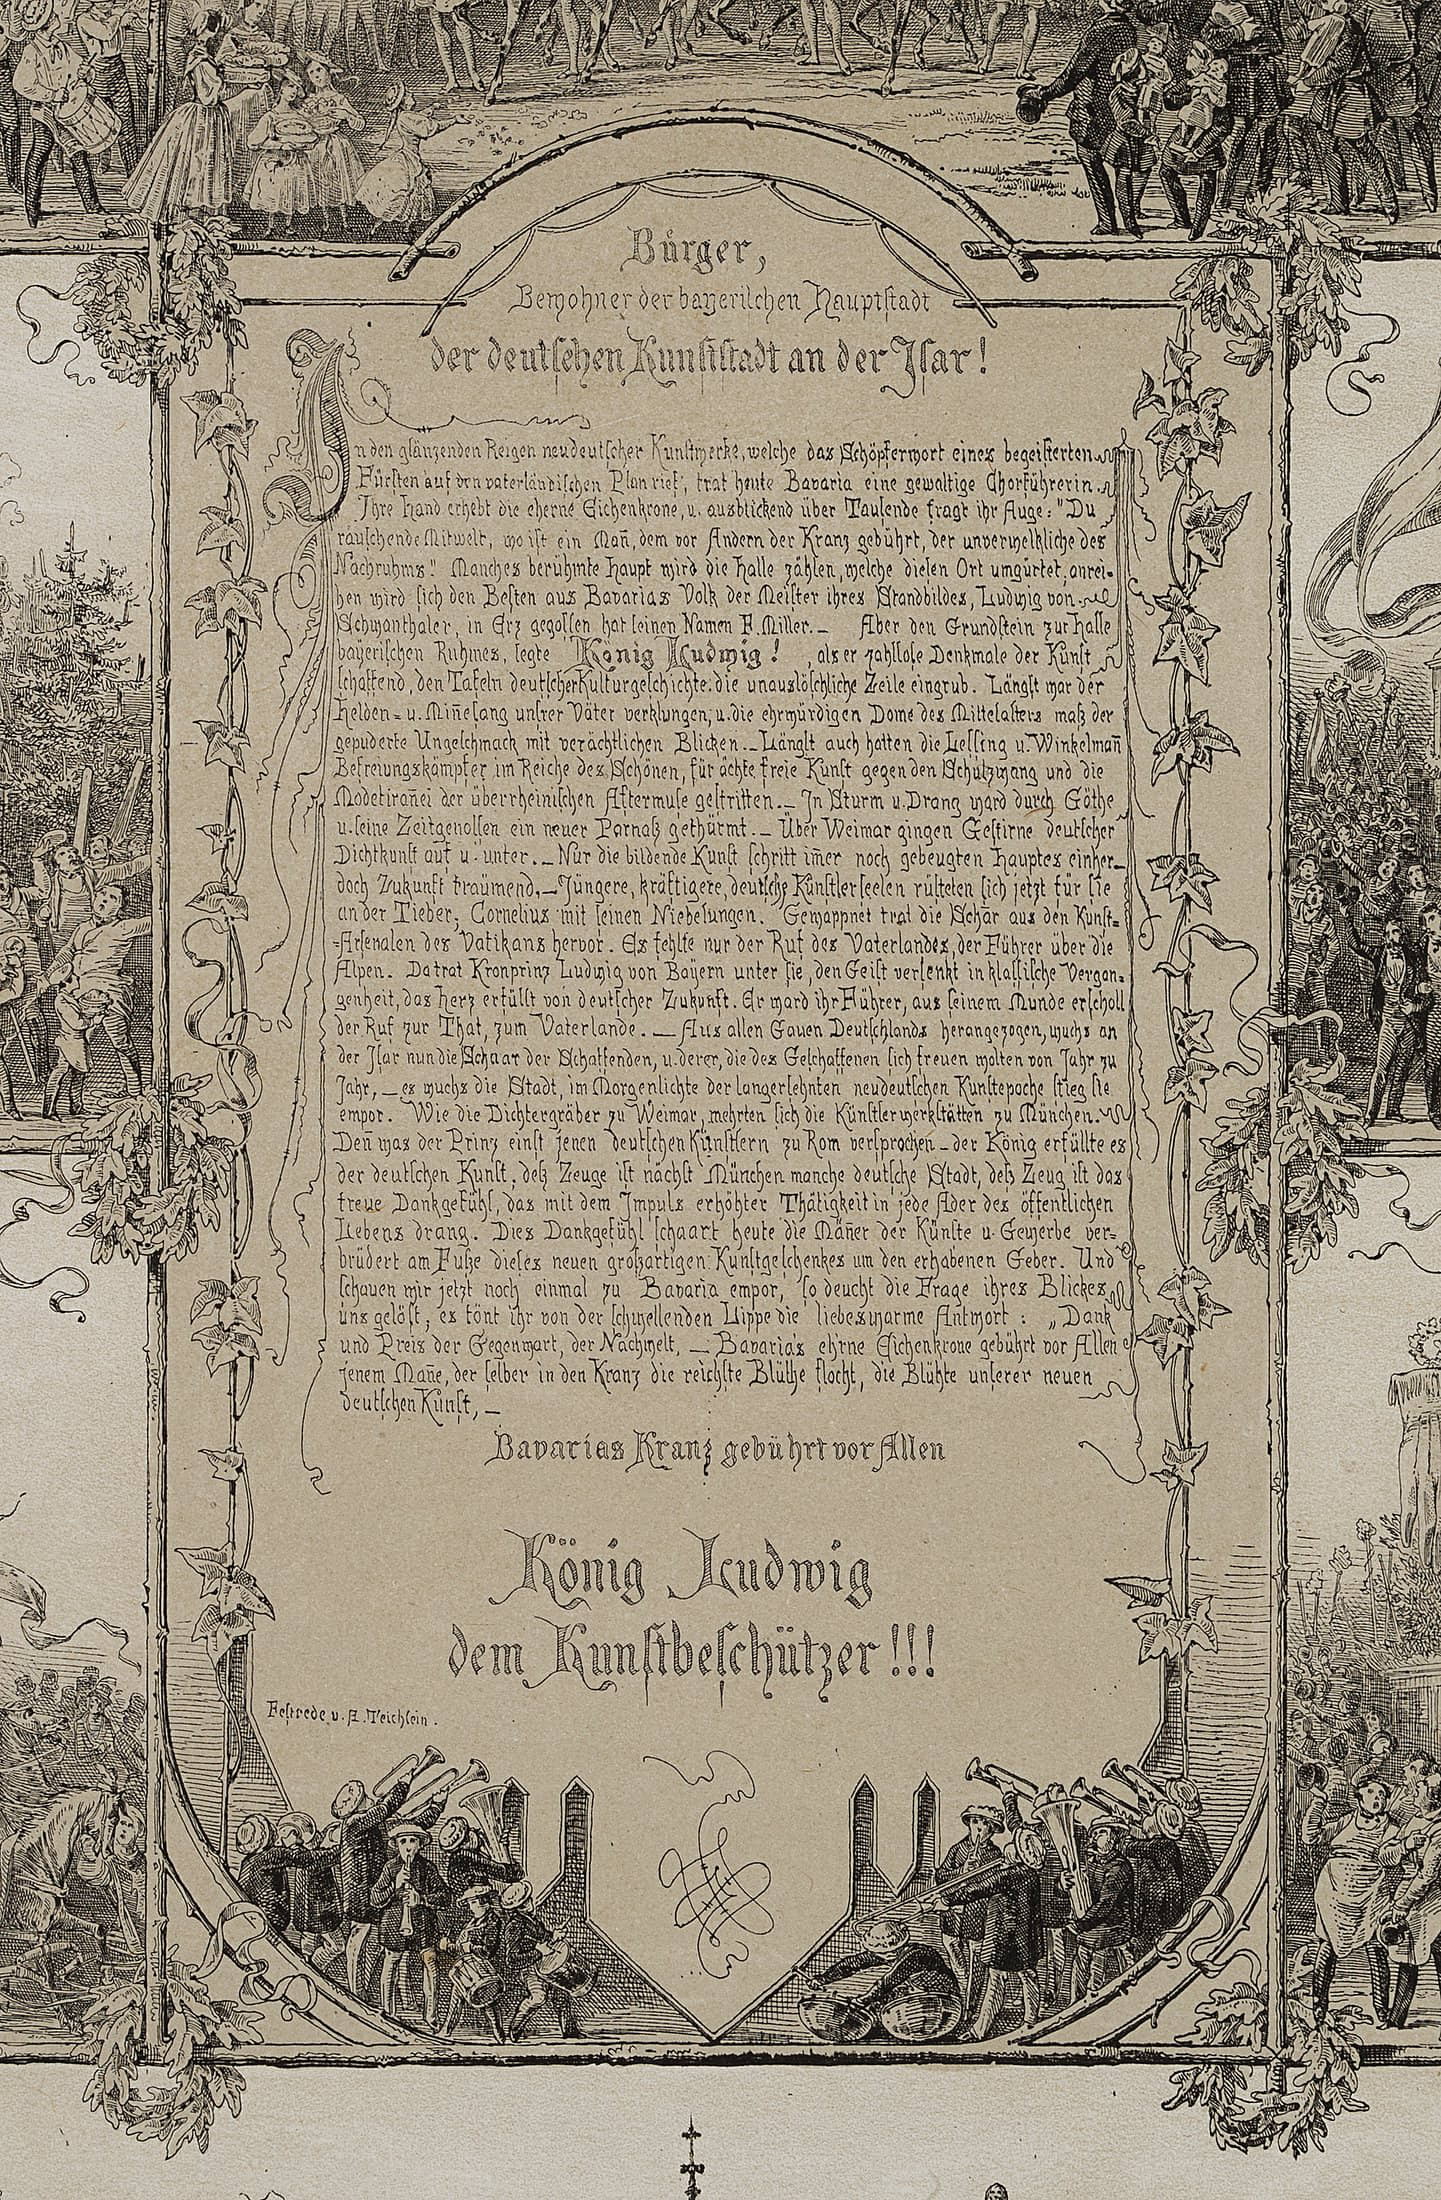 Bürger,
Bewohner der bayerischen Hauptstadt
der deutschen Kunststadt an der Isar!
In den glänzenden Reigen neudeutscher Kunstwerke, welche das Schöpferwort eines begeisterten
Fürsten auf den vaterländischen Plan rief, trat heute Bavaria eine gewaltige Chorführerin.
Ihre Hand erhebt die eherne Eichenkrone, u. ausblickend über Tausende fragt ihr Auge: "Du
rauschende Mitwelt, wo ist ein Mañ, dem vor Andern der Kranz gebührt, der unverwelkliche des
Nachruhms." Manches berühmte Haupt wird die Halle zählen, welche diesen Ort umgürtet, anrei-
hen wird sich den Besten aus Bavarias Volk der Meister ihres Standbildes, Ludwig von
Schwanthaler, in Erz gegossen hat seinen Namen F. Miller. _ Aber den Grundstein zur Halle
bayerischen Ruhmes, legte König Ludwig! , als er zahllose Denkmale der Kunst
schaffend, den Tafeln deutscher Kulturgeschichte die unauslöschliche Zeile eingrub. Längst war der
Helden= u. Miñesang unsrer Väter verklungen, u. die ehrwürdigen Dome des Mittelalters maß der
gepuderte Ungeschmack mit verächtlichen Blicken. _ Längst auch hatten die Lessing u. Winkelmañ
Befreiungskämpfer im Reiche des Schönen, für ächte freie Kunst gegen den Schulzwang und die
Modetirañei der überrheinischen Aftermuse gestritten. _ In Sturm u. Drang ward durch Göthe
u. seine Zeitgenossen ein neuer Parnaß gethürmt. _ Über Weimar gingen Gestirne deutscher
Dichtkunst auf u. unter. _ Nur die bildende Kunst schritt im̄er noch gebeugten Hauptes einher _
doch Zukunft träumend. _ Jüngere, kräftigere, deutsche Künstlerseelen rüsteten sich jetzt für sie
an der Tieber, Cornelius mit seinen Niebelungen. Gewappnet trat die Schar aus den Kunst=
=Arsenalen des Vatikans hervor. Es fehlte nur der Ruf des Vaterlandes, der Führer über die
Alpen. Da trat Kronprinz Ludwig von Bayern unter sie, den Geist versenkt in klassische Vergan=
genheit, das Herz erfüllt von deutscher Zukunft. Er ward ihr Führer, aus seinem Munde erscholl
der Ruf zur That, zum Vaterlande. _ Aus allen Gauen Deutschlands herangezogen, wuchs an
der Isar nun die Schaar der Schaffenden, u. derer, die des Geschaffenen sich freuen wolten von Jahr zu
Jahr, _ es wuchs die Stadt, im Morgenlichte der langersehnten neudeutschen Kunstepoche stieg sie
empor. Wie die Dichtergräber zu Weimar, mehrten sich die Künstlerwerkstätten zu München.
Deñ was der Prinz einst jenen deutschen Künstlern zu Rom versprochen _ der König erfüllte es
der deutschen Kunst, deß Zeuge ist nächst München manche deutsche Stadt, deß Zeug ist das
treue Dankgefühl, das mit dem Impuls erhöhter Thätigkeit in jede Ader des öffentlichen
Lebens drang. Dies Dankgefühl schaart heute die Mäñer der Künste u. Gewerbe ver=
brüdert am Fuße dieses neuen großartigen Kunstgeschenkes um den erhabenen Geber. Und
schauen wir jetzt noch einmal zu Bavaria empor, so deucht die Frage ihres Blickes
uns gelöst, es tönt ihr von der schwellenden Lippe die liebeswarme Antwort: „Dank
und Preis der Gegenwart, der Nachwelt, _ Bavaria's ehrne Eichenkrone gebührt vor Allen
jenem Mañe, der selber in den Kranz die reichste Blüthe flocht, die Blühte unserer neuen
deutschen Kunst, _
Bavarias Kranz gebührt vor Allen
König Ludwig
dem Kunstbeschützer!!!
Festrede v. A. Teichlein.